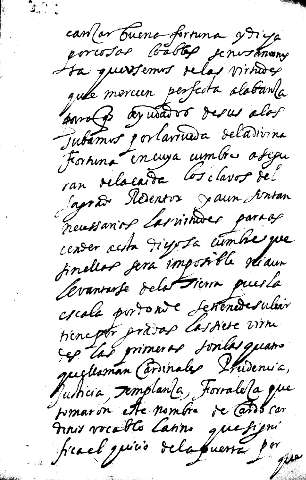 cantar buena fortuna y dicha
por cosas
ta queremos de las virtudes
que merecen perfecta alabanza
ayudados de sus alas
subamos por la rrueda de la divina
fortuna en cuya cumbre asegu
ran de la caida los clavos del
sagrado Redentor y aun son tan
necessarias las virtudes para as
cender a esta dichosa cumbre que
sin ellas sera imposible ni aun
levantarse de la tierra pues la
escala por donde se ha de subir
tiene por gradas las siete virtu
des las primeras son las quatro
que llaman Cardinales Prudencia,
Justicia, Templanza, Fortaleza que
tomaron este nombre de Cardo car
dinis vocablo latino que signi
fica el quicio de la puerta por
que